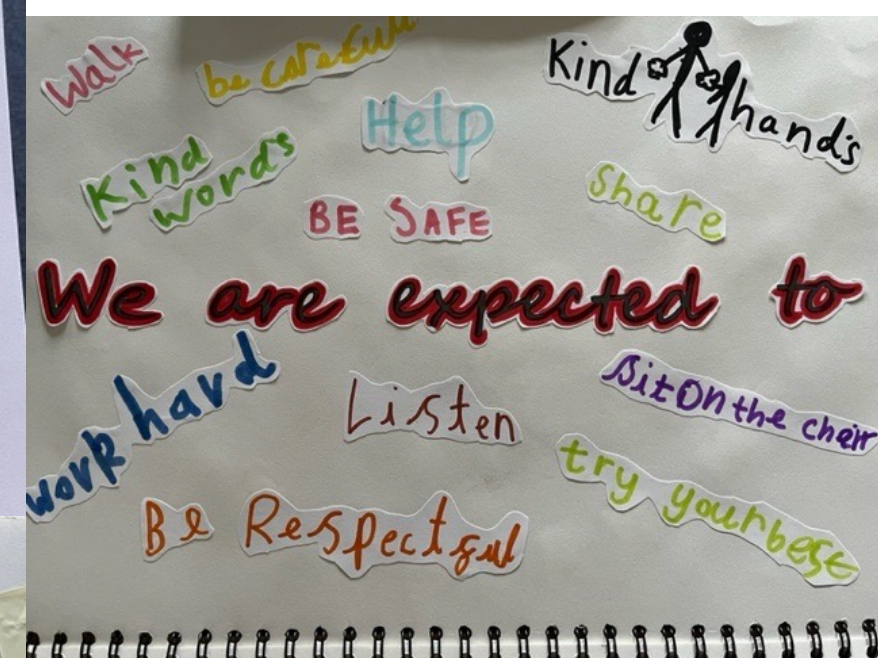 Walk
be careful
Kind hands
Help
Kind words
share
BE SAFE
We are expected to
work hard
Listen
Sit On the chair
try your best
Be Respectful